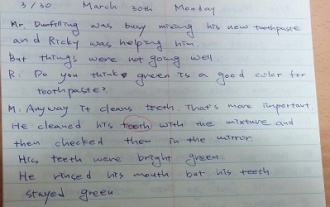 3/30 March 30th Monday
Mr. Dumfilling was busy mixing his new toothpaste
and Ricky was helping him.
But things were not going well.
R: Do you think green is a good color for
toothpaste?
M: Anyway it cleans teeth. That's more important.
He cleaned his teeth with the mixture and
then checked them in the mirror.
His teeth were bright green.
He rinsed his mouth but his teeth
stayed green.